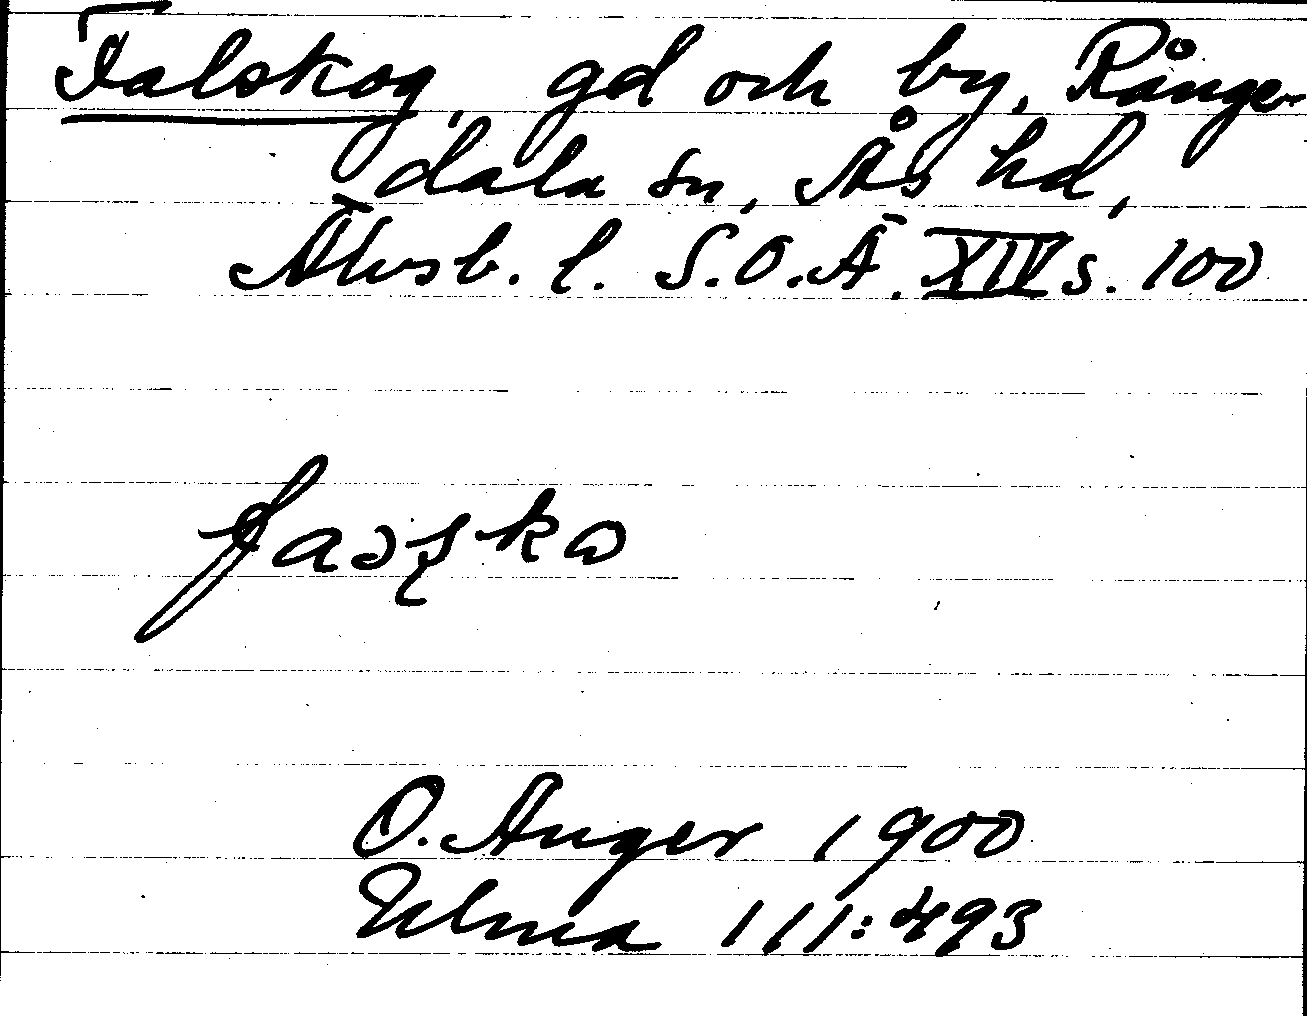 Falskog, gd och by, Långe-
dala sn, Ås hd,
Älvsb. l. S.O.Ä. XIV s. 100
O. Anger 1900
Ulma 111:493